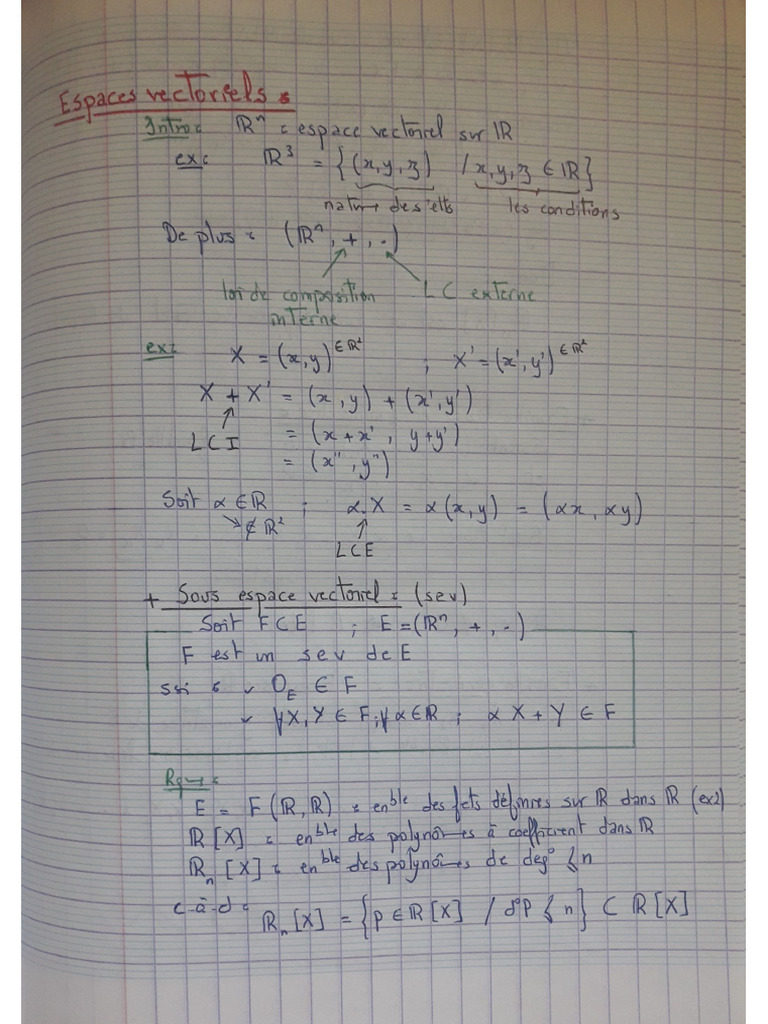 Espaces vectoriels :
Intro : ℝⁿ : espace vectoriel sur ℝ
ex : ℝ³ = {(x, y, z) / x, y, z ∈ ℝ}
nature des elts les conditions
De plus : (ℝⁿ, +, .)
loi de composition LC externe
interne
ex : X = (x, y) ∈ ℝ² ; X' = (x', y') ∈ ℝ²
X + X' = (x, y) + (x', y')
LCI = (x + x', y + y')
= (x'', y'')
Soit α ∈ ℝ ; α . X = α(x, y) = (αx, αy)
∉ ℝ²
LCE
+ Sous espace vectoriel : (sev)
Soit F ⊂ E ; E = (ℝⁿ, +, .)
F est un sev de E
ssi : ✓ 0_E ∈ F
✓ ∀X, Y ∈ F ; ∀α ∈ ℝ ; αX + Y ∈ F
Rque :
E = F(ℝ, ℝ) : enble des fcts définies sur ℝ dans ℝ (ex2)
ℝ[X] : enble des polynômes à coefficient dans ℝ
ℝₙ[X] : enble des polynômes de deg° ≤ n
c-à-d : ℝₙ[X] = {P ∈ ℝ[X] / d°P ≤ n} ⊂ ℝ[X]